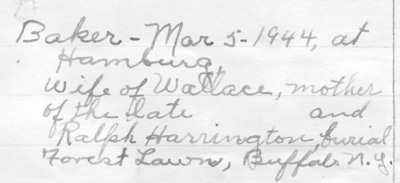 Baker - Mar 5 - 1944, at
Hamburg,
Wife of Wallace, mother
of the late and
Ralph Harrington, burial
Forest Lawn, Buffalo N.Y.